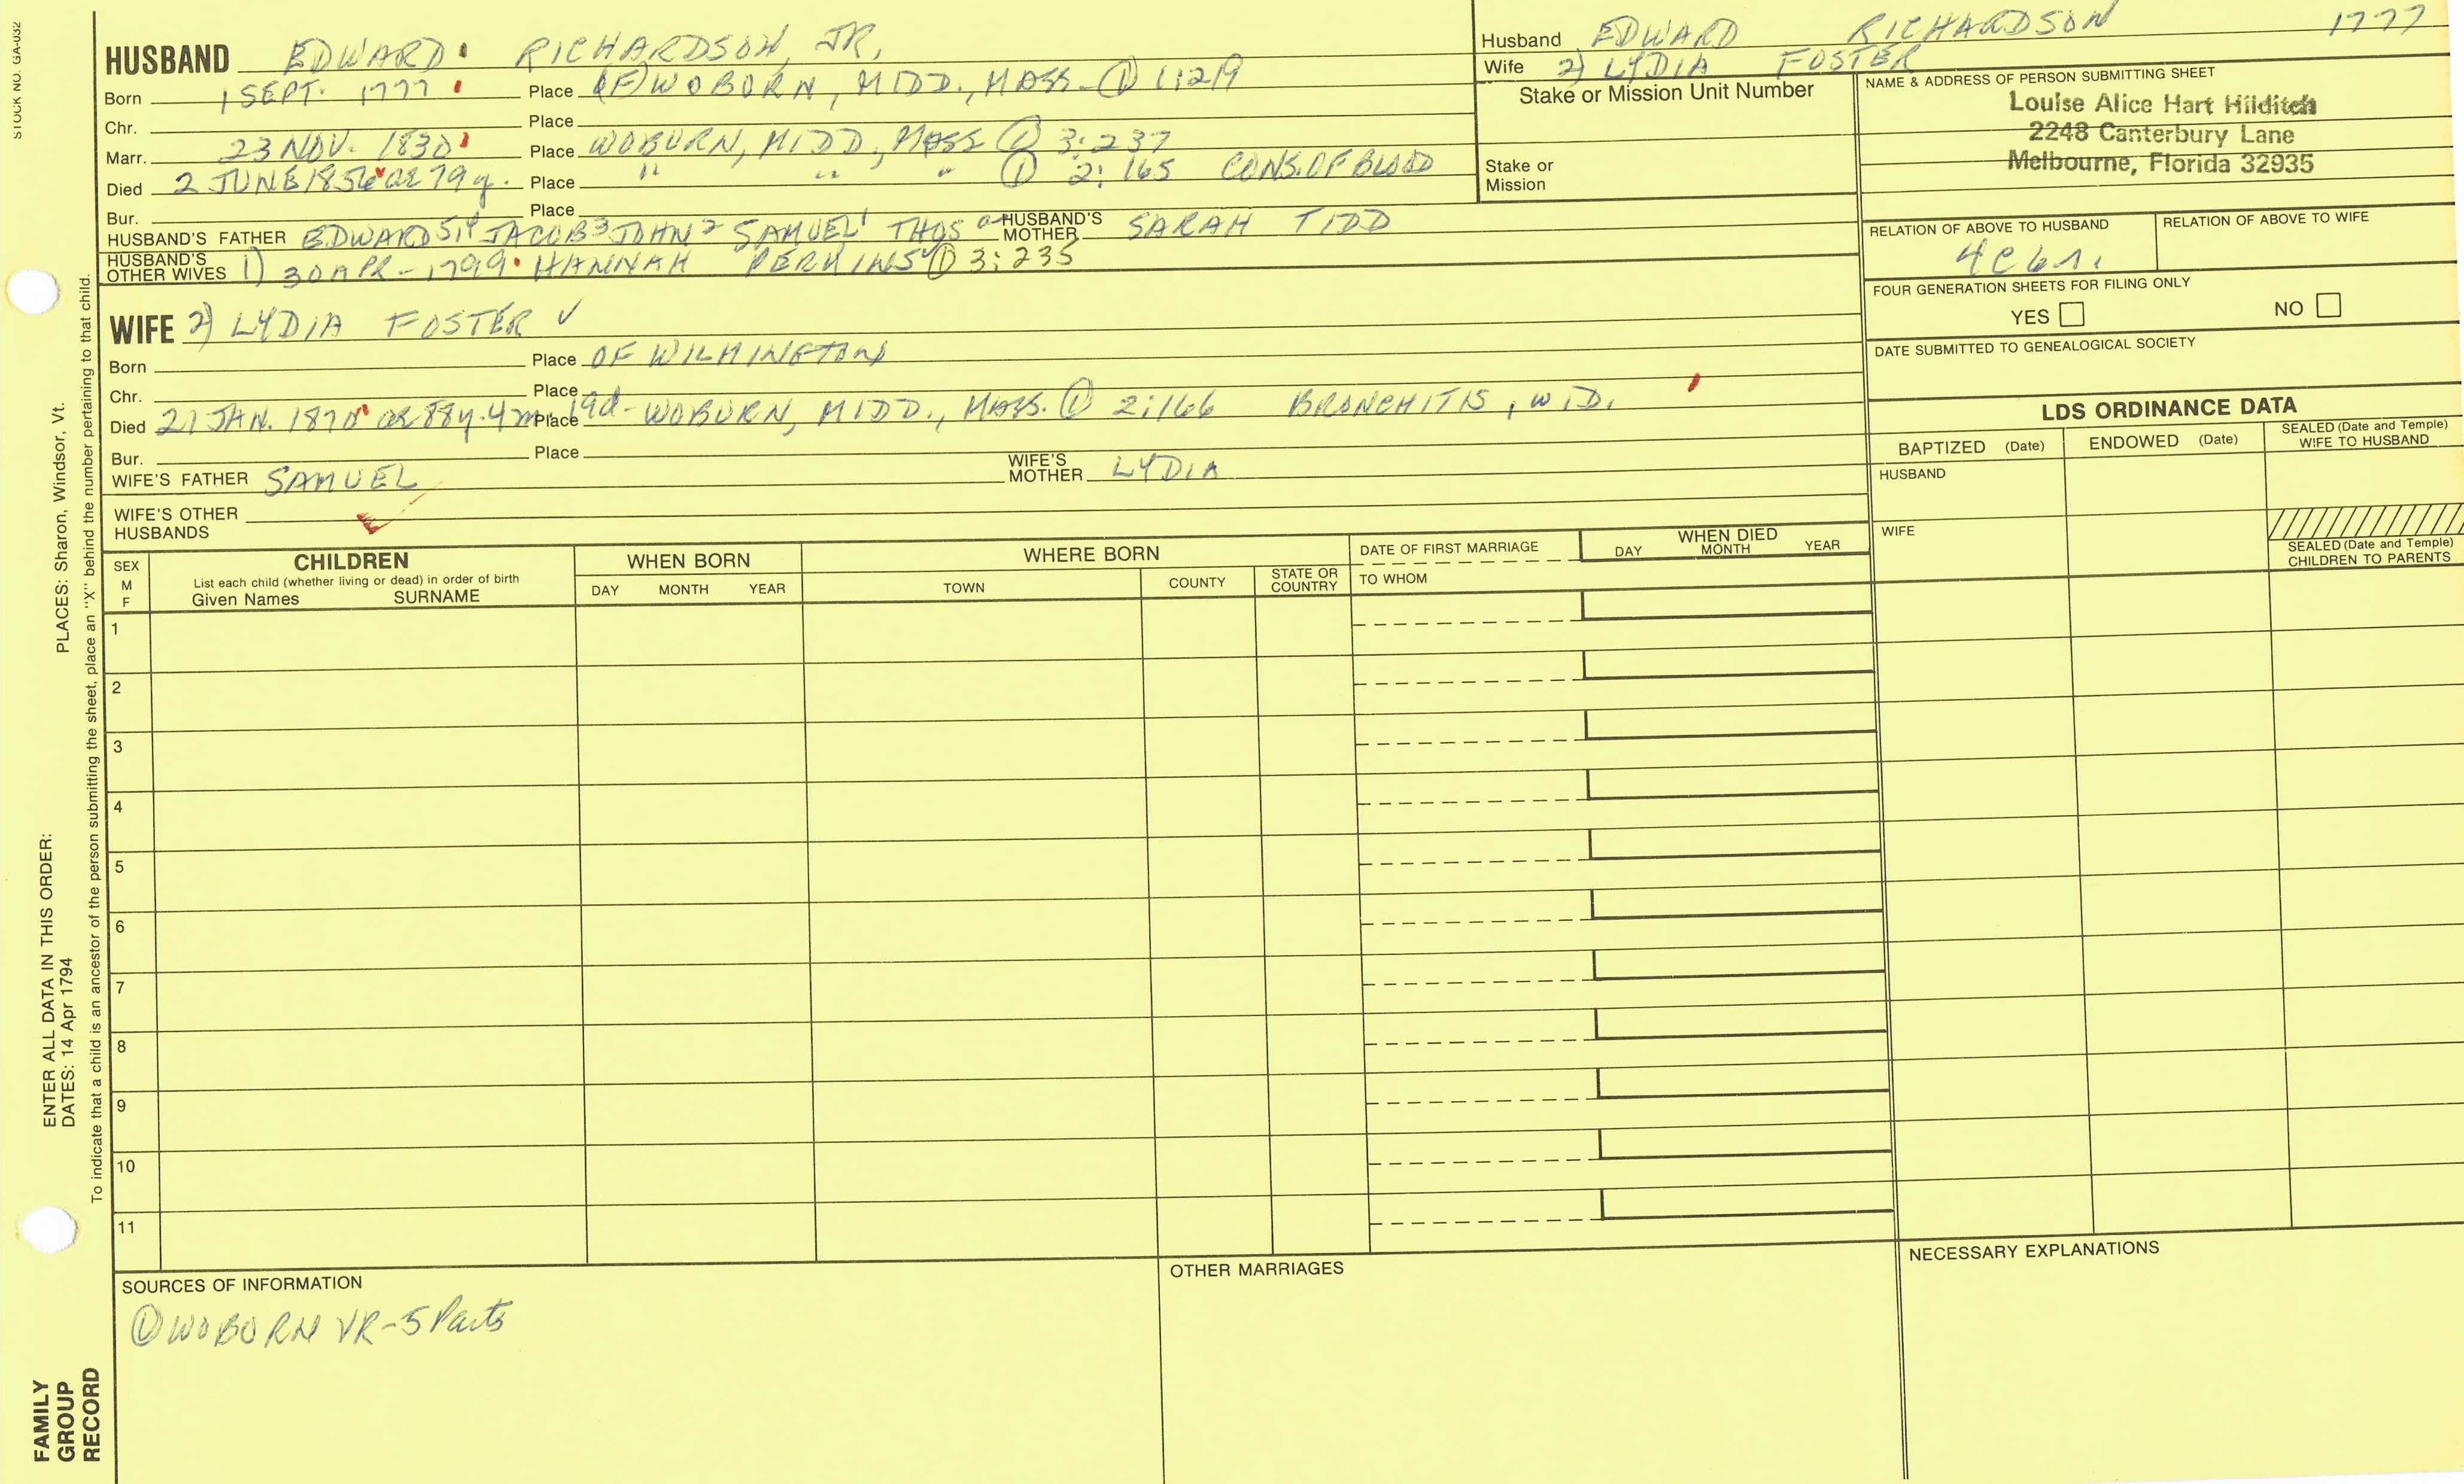 STOCK NO. GA-032
HUSBAND EDWARD RICHARDSON, JR,
Born 1 SEPT. 1777 Place (E) WOBORN, MIDD., MASS. ① 1:219
Chr. Place
Marr. 23 NOV. 1830 Place WOBURN, MIDD., MASS ① 3:237
Died 2 JUNE 1856 ae 79 y. Place " " " ① 2:165 CONS. OF BLOOD
Bur. Place
HUSBAND'S FATHER EDWARD 5,4 JACOB 3 JOHN 2 SAMUEL 1 THOS HUSBAND'S MOTHER SARAH TIDD
HUSBAND'S OTHER WIVES 1) 30 APR - 1799 HANNAH PERKINS ① 3:235
Husband EDWARD RICHARDSON 1777
Wife 2) LYDIA FOSTER
Stake or Mission Unit Number
Stake or Mission
NAME & ADDRESS OF PERSON SUBMITTING SHEET
Louise Alice Hart Hilditch
2248 Canterbury Lane
Melbourne, Florida 32935
RELATION OF ABOVE TO HUSBAND RELATION OF ABOVE TO WIFE
4C6r.
FOUR GENERATION SHEETS FOR FILING ONLY
YES NO
DATE SUBMITTED TO GENEALOGICAL SOCIETY
WIFE 2) LYDIA FOSTER ✓
Born Place OF WILMINGTON
Chr. Place
Died 21 JAN. 1870 ae 88y. 4m. 19d - Place WOBURN, MIDD., MASS. ① 2:166 BRONCHITIS, WID.
Bur. Place
WIFE'S FATHER SAMUEL WIFE'S MOTHER LYDIA
WIFE'S OTHER HUSBANDS
LDS ORDINANCE DATA
BAPTIZED (Date) ENDOWED (Date) SEALED (Date and Temple) WIFE TO HUSBAND
HUSBAND
WIFE
SEALED (Date and Temple) CHILDREN TO PARENTS
SEX M F
CHILDREN
List each child (whether living or dead) in order of birth
Given Names SURNAME
WHEN BORN
DAY MONTH YEAR
WHERE BORN
TOWN COUNTY STATE OR COUNTRY
DATE OF FIRST MARRIAGE
TO WHOM
WHEN DIED
DAY MONTH YEAR
1
2
3
4
5
6
7
8
9
10
11
SOURCES OF INFORMATION
① WOBORN VR-5 Parts
OTHER MARRIAGES
NECESSARY EXPLANATIONS
ENTER ALL DATA IN THIS ORDER:
DATES: 14 Apr 1794
PLACES: Sharon, Windsor, Vt.
To indicate that a child is an ancestor of the person submitting the sheet, place an "X" behind the number pertaining to that child.
FAMILY
GROUP
RECORD